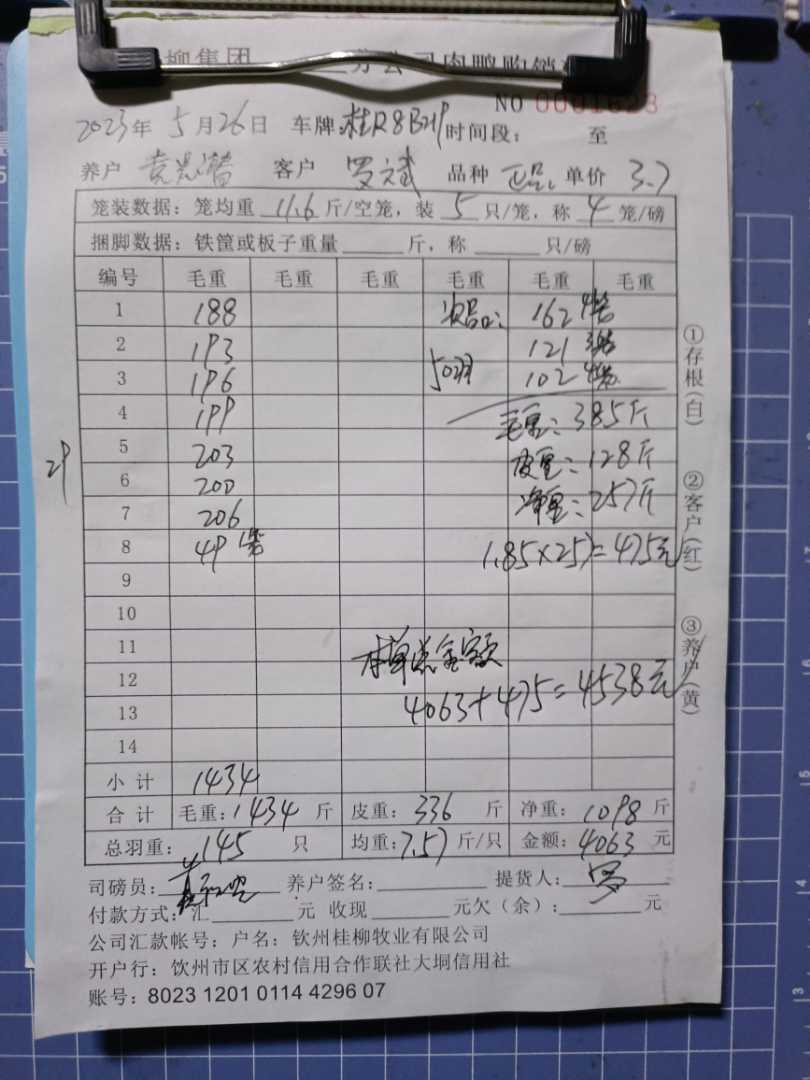 柳集团 分公司肉鸭购销
NO 0001623
2023年 5月26日 车牌:桂R8B219 时间段: 至
养户 客户 罗文斌 品种 正品 单价 3.7
笼装数据:笼均重 11.6 斤/空笼,装 5 只/笼,称 4 笼/磅
捆脚数据:铁筐或板子重量 斤,称 只/磅
编号 毛重 毛重 毛重 毛重 毛重 毛重
1 188 次品: 162 4笼
2 193 121
3 196 50羽 102 4笼
4 199 毛重: 385斤
5 203 皮重: 128斤
29
6 200 净重: 257斤
7 206
8 49 1笼 1.85×257=475元
9
10
11 本单总金额
12
13 4063+475=4538元
14
小计 1434
合计 毛重:1434 斤 皮重: 336 斤 净重: 1098 斤
总羽重: 145 只 均重:7.57 斤/只 金额:4063 元
司磅员: 养户签名: 提货人: 罗
付款方式:汇 元 收现 元欠(余): 元
公司汇款帐号:户名:钦州桂柳牧业有限公司
开户行:饮州市区农村信用合作联社大垌信用社
账号:8023 1201 0114 4296 07
①存根(白) ②客户(红) ③养户(黄)